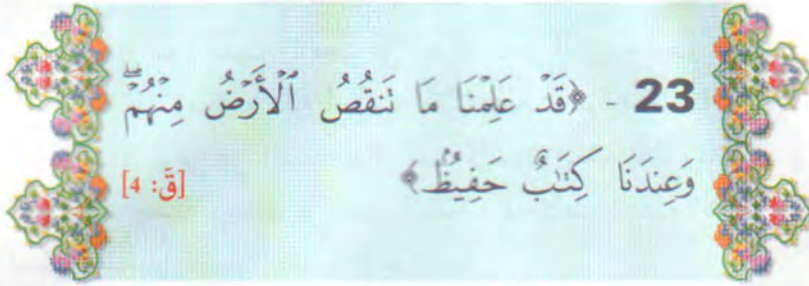 23 - ﴿قَدْ عَلِمْنَا مَا تَنقُصُ ٱلْأَرْضُ مِنْهُمْ ۖ
وَعِندَنَا كِتَٰبٌ حَفِيظٌۢ﴾ [قَ: 4]